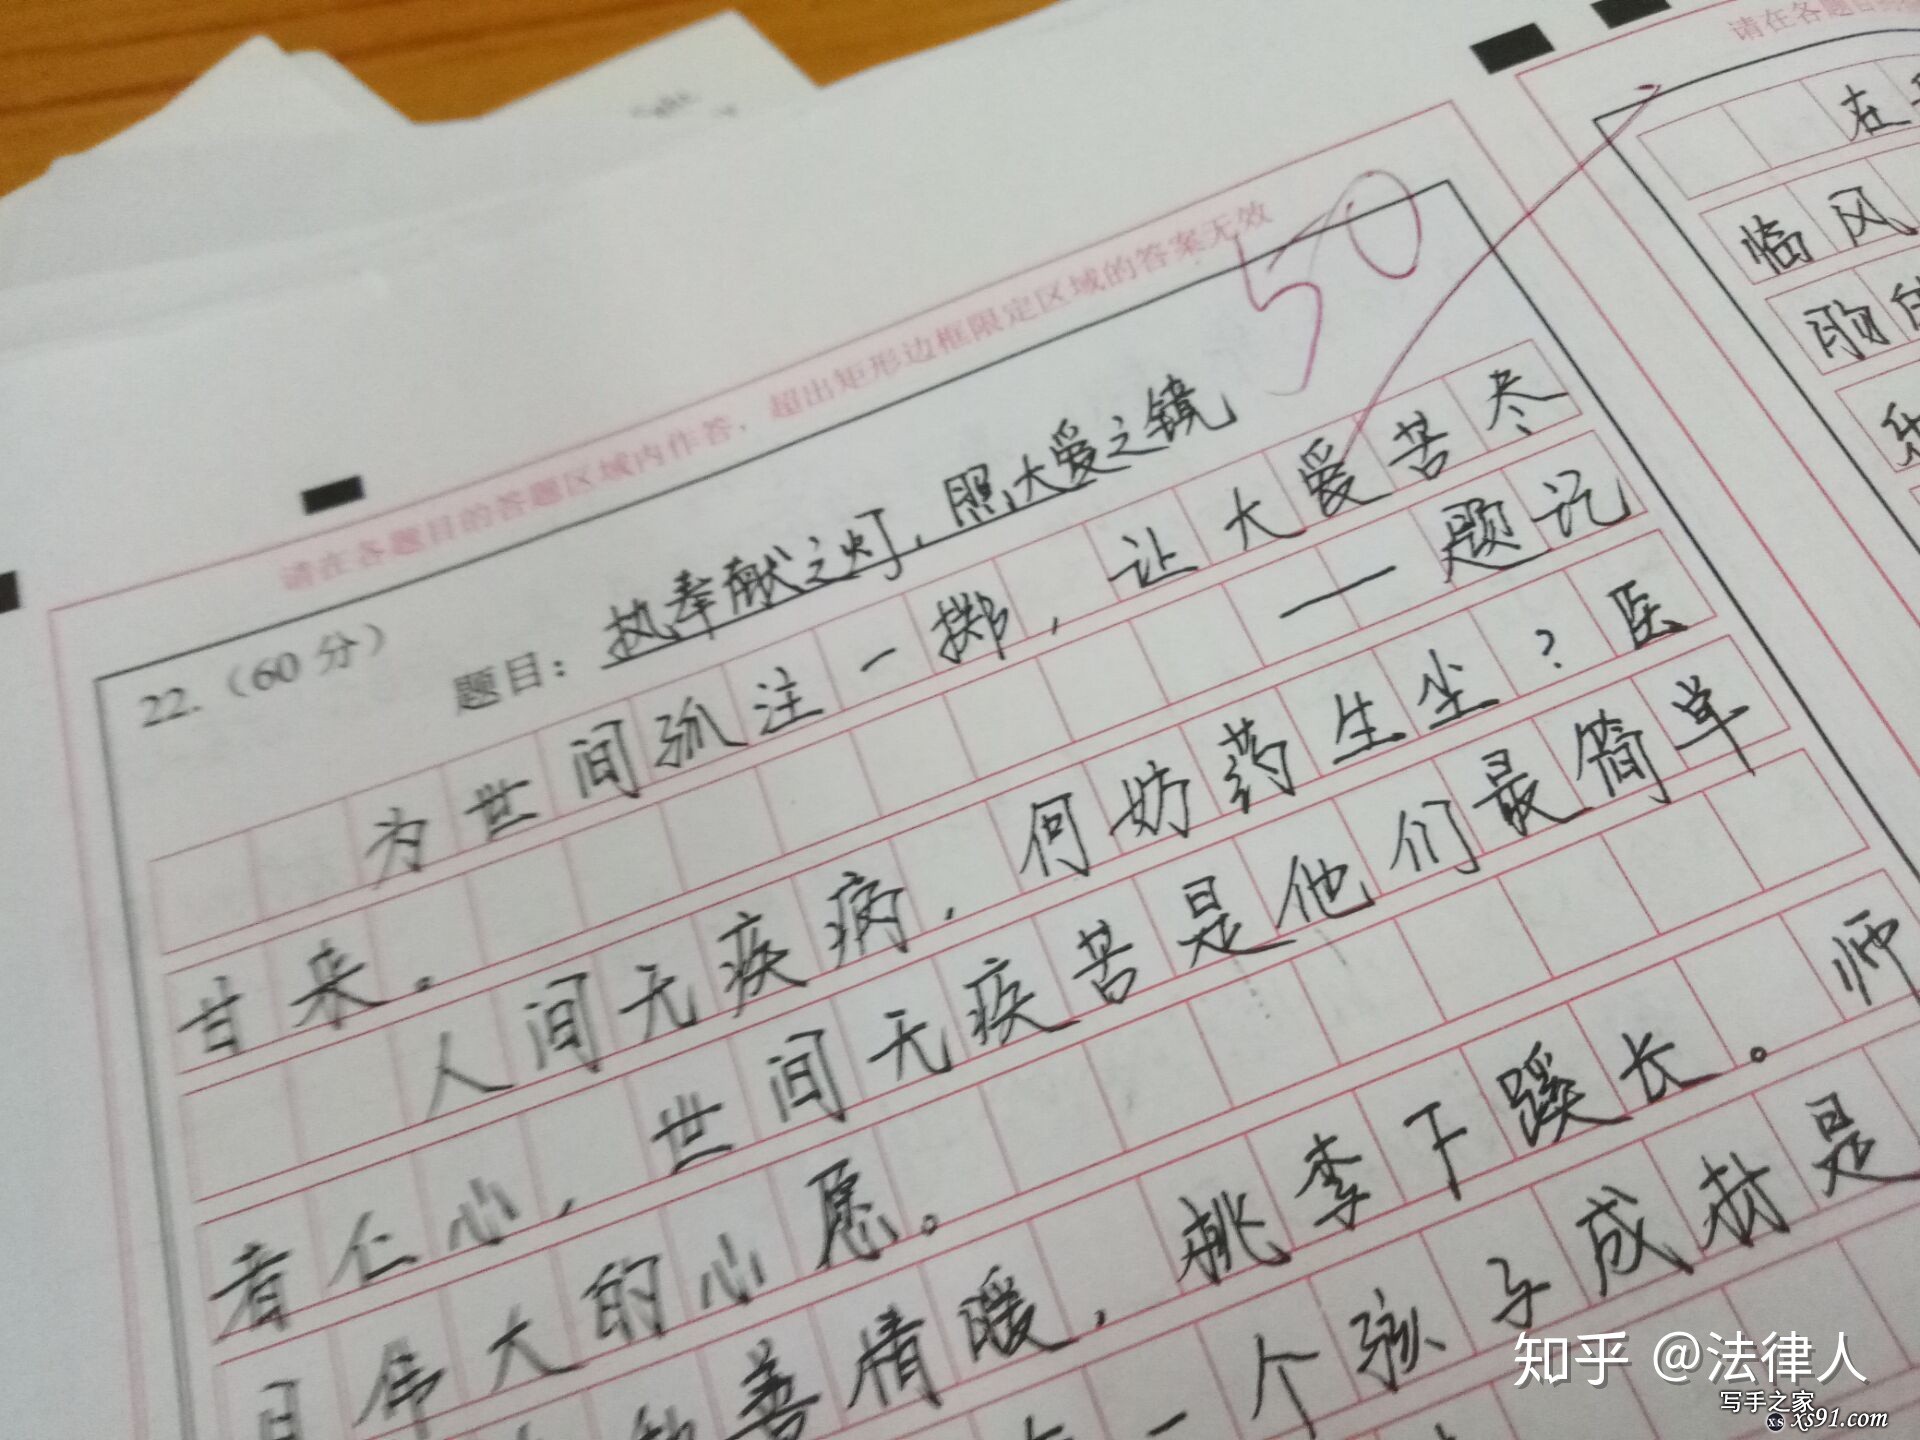 请在各题目的答题区域内作答，超出矩形边框限定区域的答案无效
50
22.（60分） 题目：执奉献之灯，照大爱之镜
为世间孤注一掷，让大爱苦尽
甘来。 ——题记
人间无疾病，何妨药生尘？医
者仁心，世间无疾苦是他们最简单
伟大的心愿。
善情暖，桃李下蹊长。师
一个孩子成材是
请在各题目
在
临风
知乎 @法律人
写手之家
xs91.com